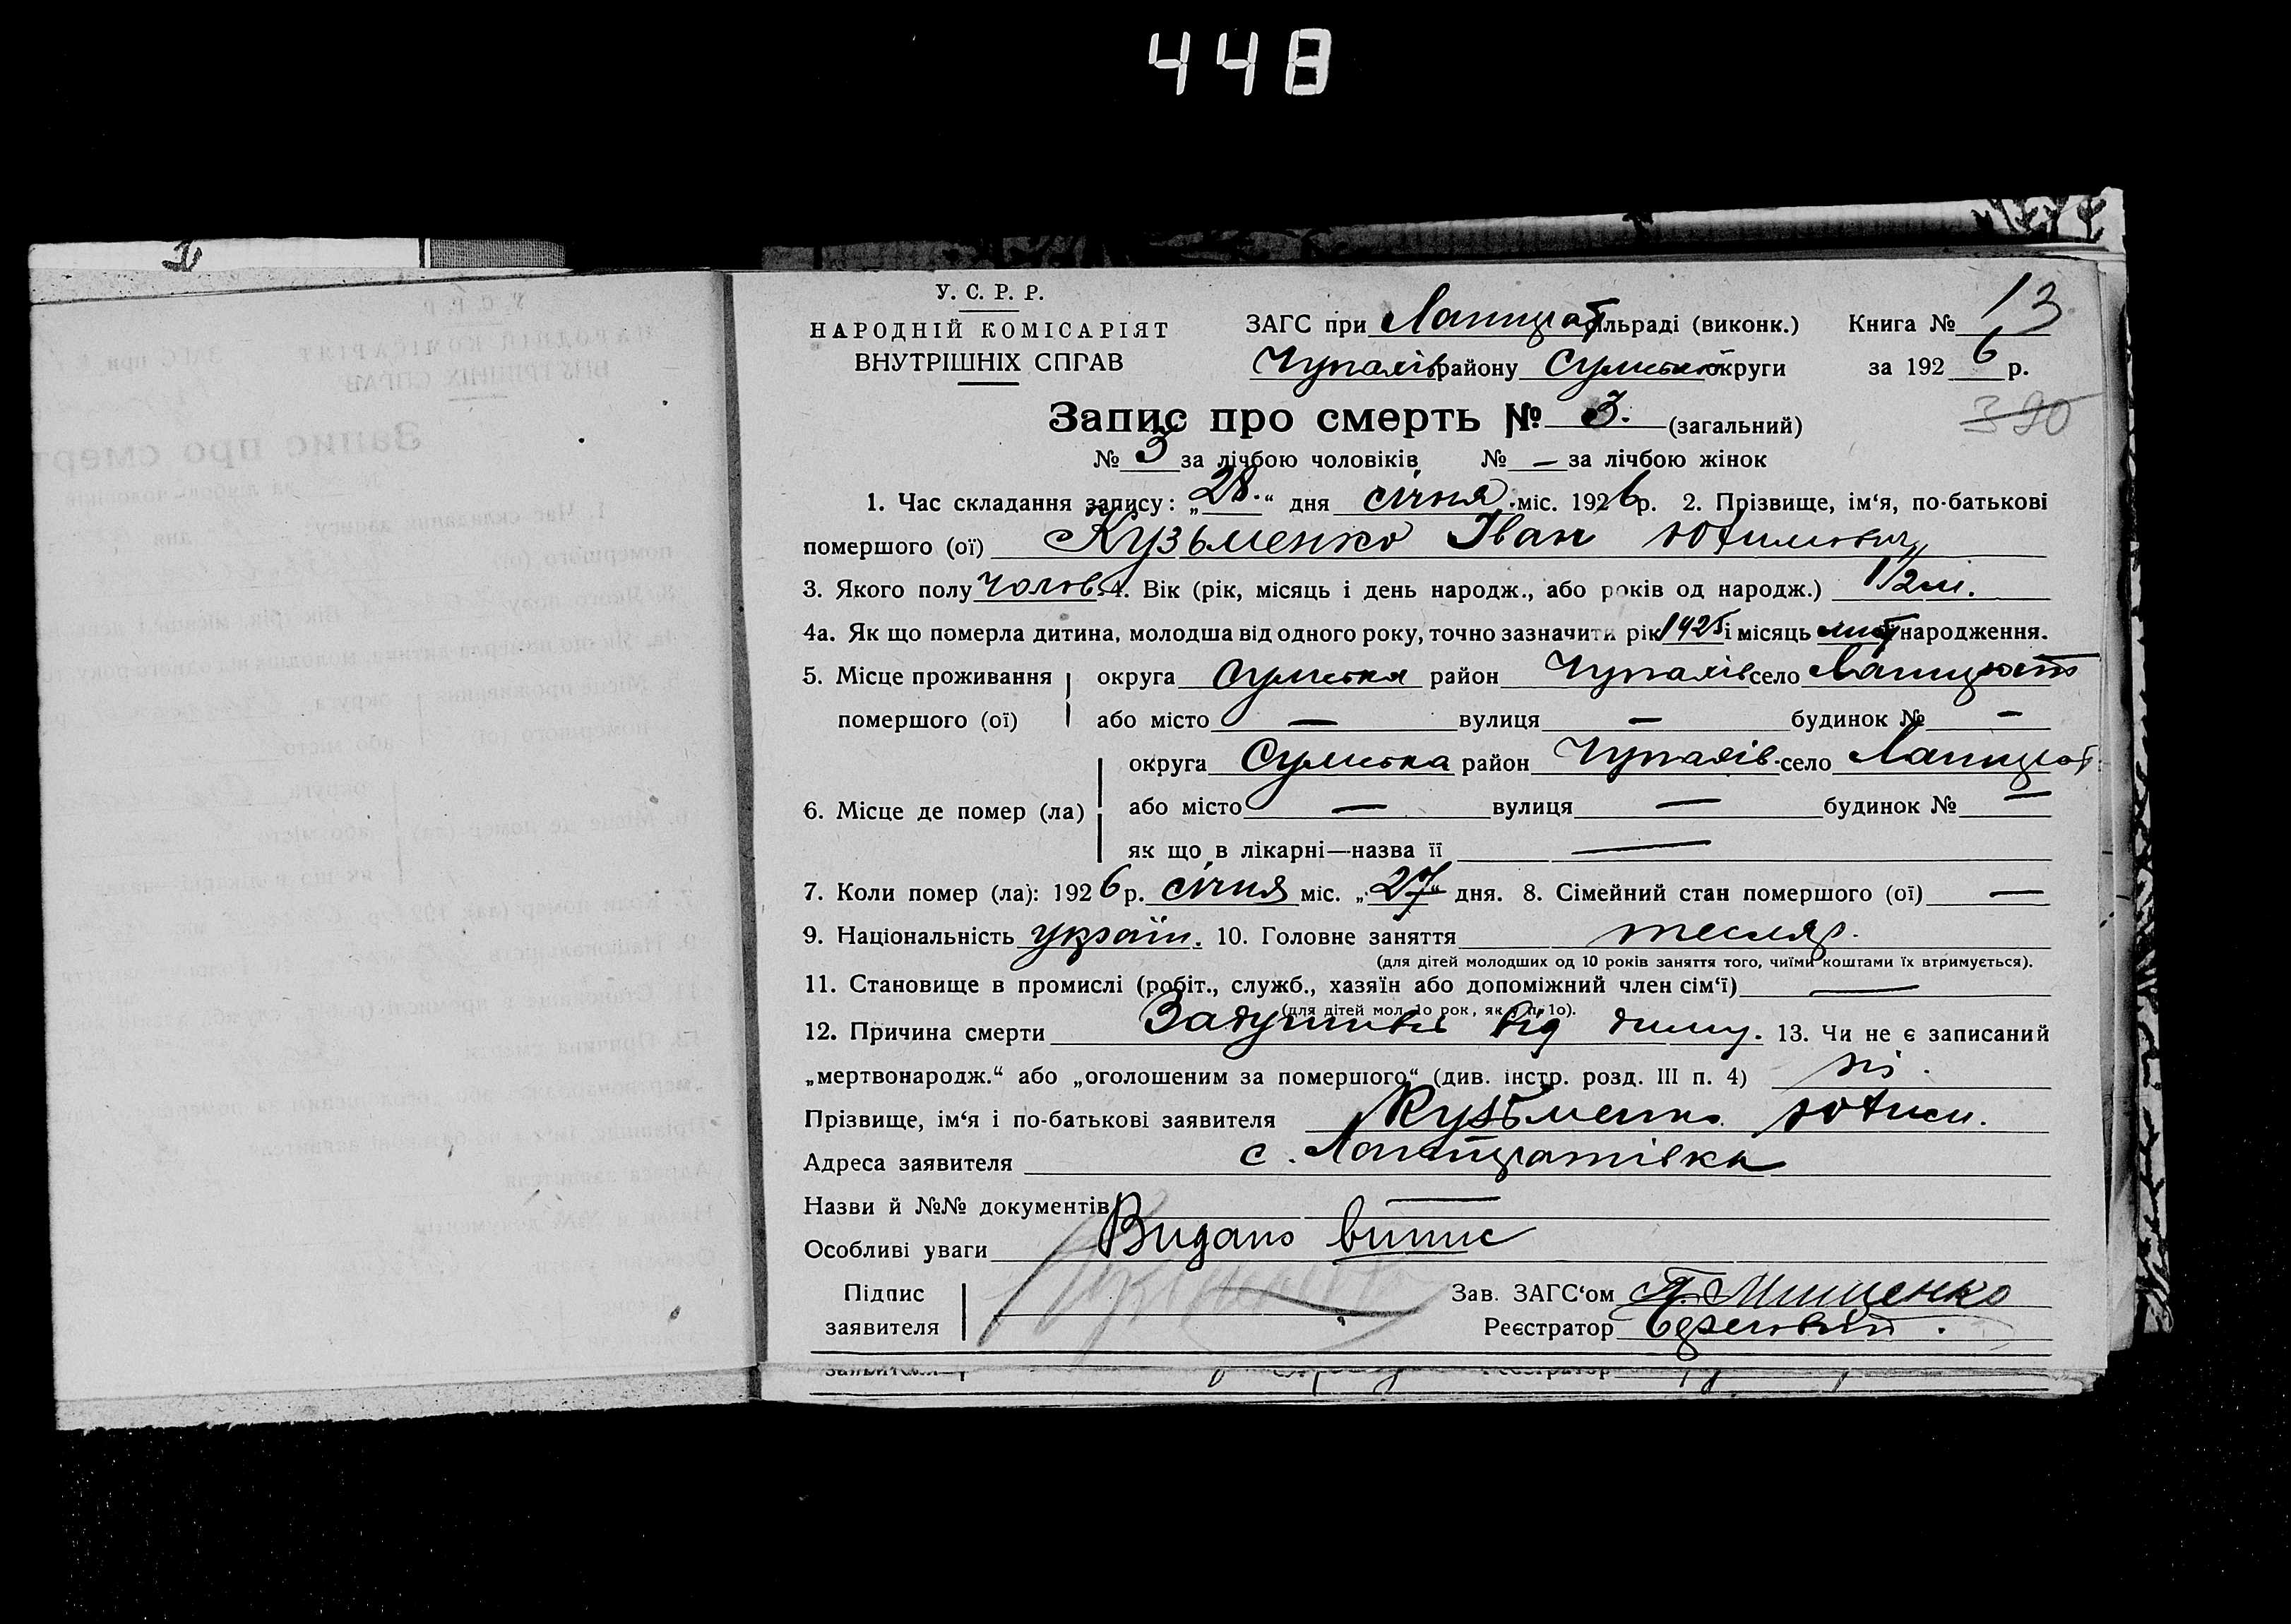 448
У. С. Р. Р.
НАРОДНІЙ КОМІСАРІЯТ
ВНУТРІШНІХ СПРАВ
ЗАГС при льраді (виконк.) Книга № 13
Чупахів району Сумської округи за 1926 р.
390
Запис про смерть № 3. (загальний)
№ 3 за лічбою чоловіків № — за лічбою жінок
1. Час складання запису: „28.“ дня січня міс. 1926 р. 2. Прізвище, ім‘я, по-батькові
помершого (ої) Кузьменко Іван Юхимович
3. Якого полу чолов. 4. Вік (рік, місяць і день народж., або років од народж.) 1/2 м.
4а. Як що померла дитина, молодша від одного року, точно зазначити рік 1925 і місяць лист народження.
5. Місце проживання округа Сумська район Чупахів село
помершого (ої) або місто — вулиця — будинок № —
округа Сумська район Чупахів. село
6. Місце де помер (ла) або місто — вулиця — будинок № —
як що в лікарні—назва її —
7. Коли помер (ла): 1926 р. січня міс. „27“ дня. 8. Сімейний стан помершого (ої) —
9. Національність україн. 10. Головне заняття тесляр.
(для дітей молодших од 10 років заняття того, чиїми коштами їх втримується).
11. Становище в промислі (робіт., служб., хазяїн або допоміжний член сім‘ї) —
(для дітей мол. 1о рок, як у п. 1о).
12. Причина смерти від диму. 13. Чи не є записаний
„мертвонародж.“ або „оголошеним за помершого“ (див. інстр. розд. III п. 4) ні.
Прізвище, ім‘я і по-батькові заявителя Кузьменко Юхим.
Адреса заявителя с.
Назви й №№ документів —
Особливі уваги Видано випис
Підпис
заявителя
Зав. ЗАГС‘ом Мищенко
Реєстратор